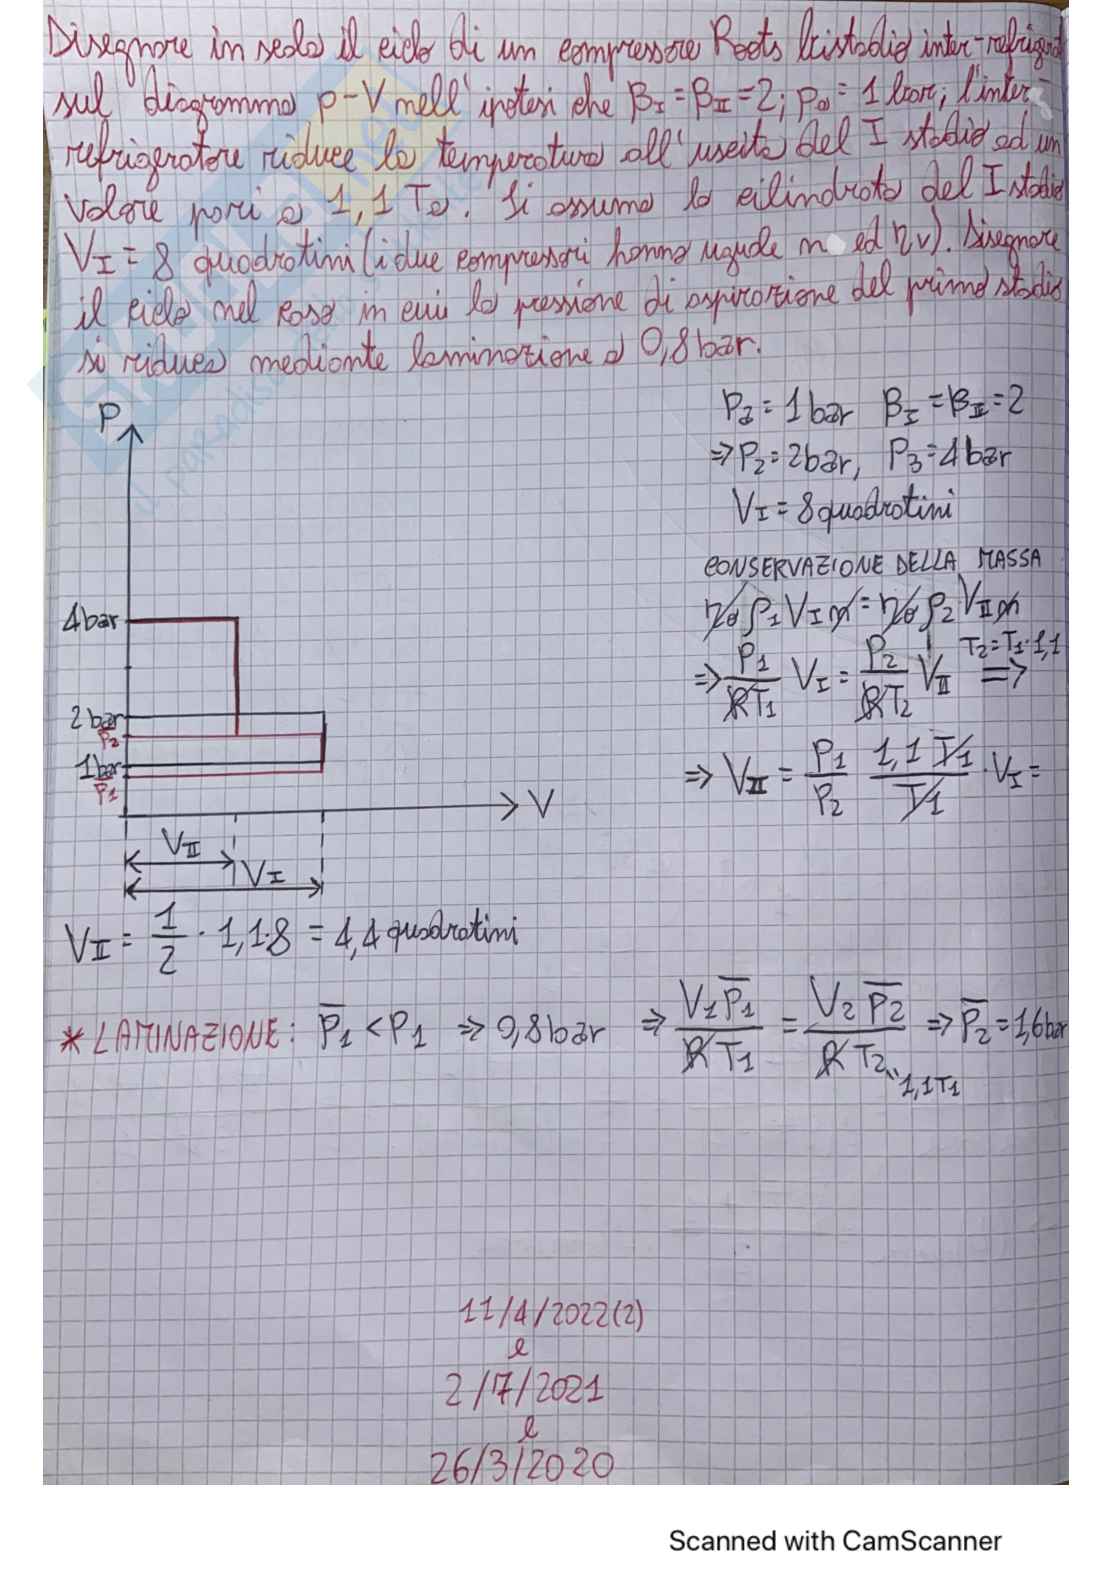 Disegnare in scala il ciclo di un compressore Roots bistadio inter-refrigerato
sul diagramma p-V nell' ipotesi che βI = βII = 2; pa = 1 bar; l'inter-
refrigeratore riduce la temperatura all' uscita del I stadio ad un
valore pari a 1,1 Ta. Si assuma la cilindrata del I stadio
VI = 8 quadratini (i due compressori hanno uguale n ed ηv). Disegnare
il ciclo nel caso in cui la pressione di aspirazione del primo stadio
si riduca mediante laminazione a 0,8 bar.
Pa = 1 bar βI = βII = 2
⇒ P2 = 2bar, P3 = 4 bar
VI = 8 quadratini
CONSERVAZIONE DELLA MASSA
ηv ρ1 VI n = ηv ρ2 VII n
⇒ P1/RT1 VI = P2/RT2 VII T2 = T1·1,1 ⇒
⇒ VII = P1/P2 1,1 T1/T1 · VI =
P
4bar
2bar
p̅2
1bar
p̅1
V
VII
VI
VII = 1/2 · 1,1·8 = 4,4 quadratini
* LAMINAZIONE: p̅1 < P1 ⇒ 0,8 bar ⇒ V1 p̅1/R T1 = V2 p̅2/R T2 ⇒ p̅2 = 1,6bar
"1,1T1
11/4/2022(2)
e
2/7/2021
e
26/3/2020
Scanned with CamScanner